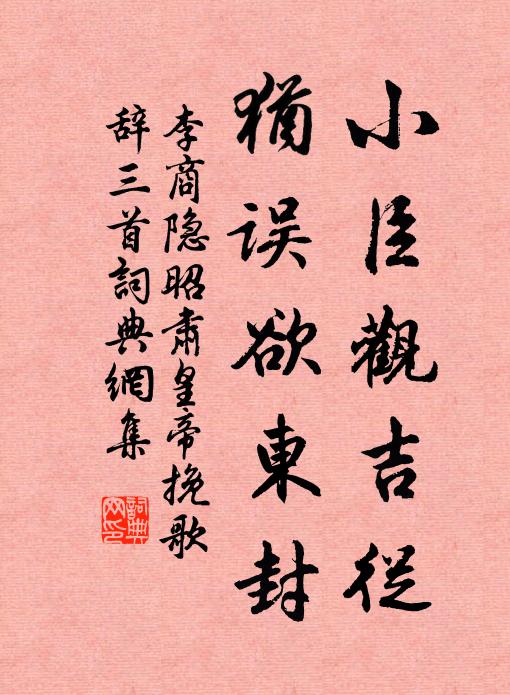 小臣觀吉從
猶误欲東封
李商隐昭肅皇帝挽歌
辞三首詞典網集
詞典
网印